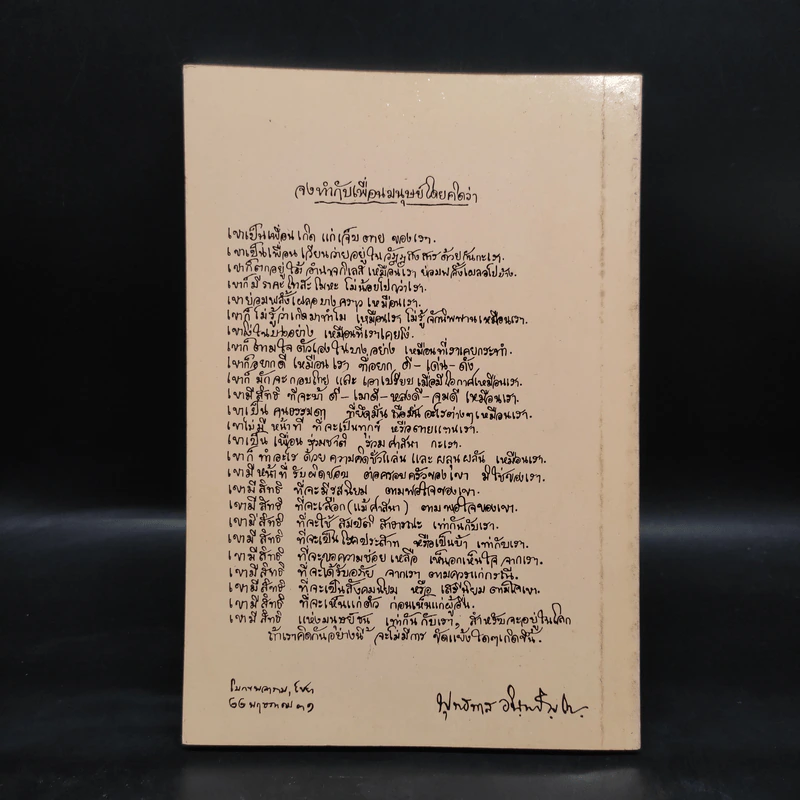 จงทำกับเพื่อนมนุษย์โดยคิดว่า
เขาเป็นเพื่อน เกิด แก่ เจ็บ ตาย ของเรา.
เขาเป็นเพื่อน เวียนว่ายอยู่ใน วัฏฏสงสาร ด้วยกันกะเรา.
เขาก็ตกอยู่ใต้ อำนาจกิเลส เหมือนเรา ย่อมพลั้งเผลอไปบ้าง.
เขาก็มี ราคะ โทสะ โมหะ ไม่น้อยไปกว่าเรา.
เขาย่อมพลั้งเผลอบางคราว เหมือนเรา.
เขาก็ไม่รู้ว่าเกิดมาทำไม เหมือนเรา ไม่รู้จักนิพพานเหมือนเรา.
เขาโง่ในบางอย่าง เหมือนที่เราเคยโง่.
เขาก็ตามใจตัวเองในบางอย่าง เหมือนที่เราเคยกระทำ.
เขาก็อยากดี เหมือนเรา ที่อยาก ดี - เด่น - ดัง
เขาก็ มักจะกอบโกย และ เอาเปรียบ เมื่อมีโอกาสเหมือนเรา.
เขามีสิทธิ ที่จะบ้า ดี - เมาดี - หลงดี - จมดี เหมือนเรา.
เขาเป็น คนธรรมดา ที่ยึดมั่น ถือมั่น อะไรต่างๆ เหมือนเรา.
เขาไม่มี หน้าที่ ที่จะเป็นทุกข์ หรือตายแทนเรา.
เขาเป็น เพื่อน ร่วมชาติ ร่วม ศาสนา กะเรา.
เขาก็ ทำอะไร ด้วย ความคิดชั่วแล่น และ ผลุนผลัน เหมือนเรา.
เขามี หน้าที่ รับผิดชอบ ต่อครอบครัวของเขา มิใช่ของเรา.
เขามี สิทธิ ที่จะมีรสนิยม ตามพอใจของเขา.
เขามี สิทธิ ที่จะเลือก (แม้ศาสนา) ตามพอใจของเขา.
เขามี สิทธิ ที่จะใช้ สมบัติ สาธารณะ เท่ากันกับเรา.
เขามี สิทธิ ที่จะเป็นโรคประสาท หรือเป็นบ้า เท่ากับเรา.
เขามี สิทธิ ที่จะขอความช่วยเหลือ เห็นอกเห็นใจ จากเรา.
เขามี สิทธิ ที่จะได้รับอภัย จากเรา ตามควรแก่กรณี.
เขามี สิทธิ ที่จะเป็นสังคมนิยม หรือ เสรีนิยม ตามใจเขา.
เขามี สิทธิ ที่จะเห็นแก่ตัว ก่อนเห็นแก่ผู้อื่น.
เขามี สิทธิ แห่งมนุษย์ชน เท่ากันกับเรา, สำหรับจะอยู่ในโลก
ถ้าเราคิดกันอย่างนี้ จะไม่มีการ ขัดแย้งใดๆเกิดขึ้น.
โมกขพลาราม, ไชยา
๒๒ พฤษภาคม ๓๑
พุทธทาส อินฺทปญฺโญ.